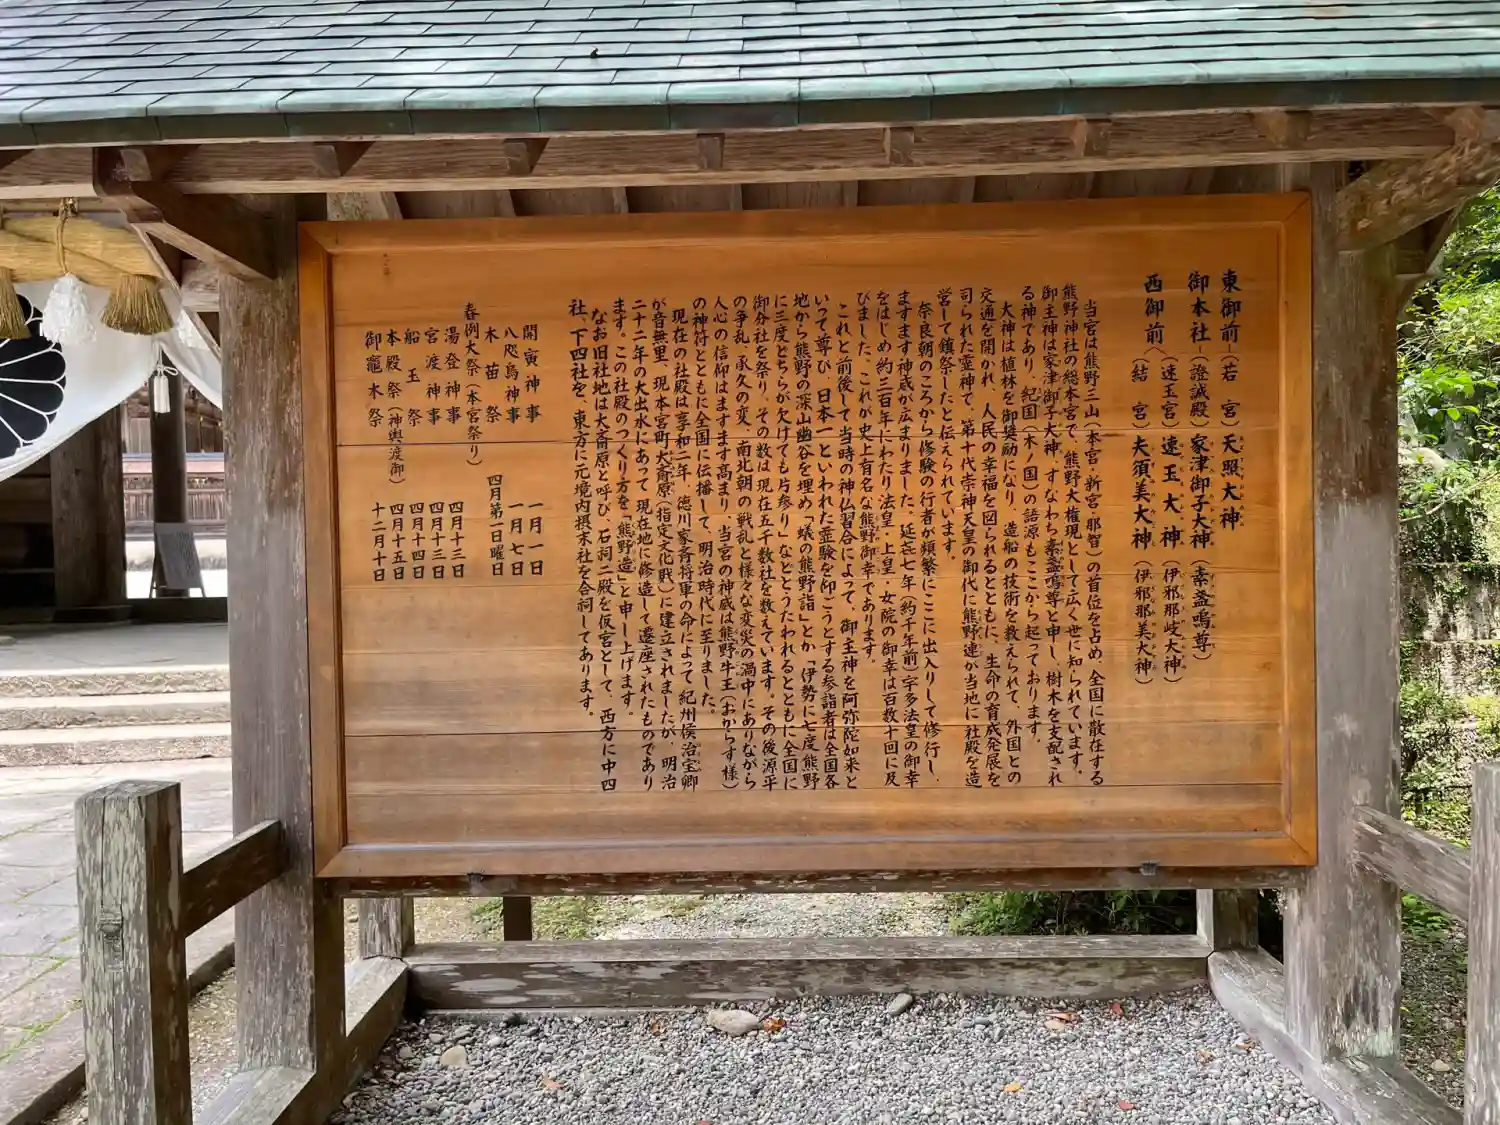 東御前―(若　宮)天照大神
御本社―(證誠殿)家津御子大神(素盞嗚尊)
西御前
(速玉宮)速玉大神(伊邪那岐大神)
(結　宮)夫須美大神(伊邪那美大神)
当宮は熊野三山(本宮・新宮・那智)の首位を占め、全国に散在する
熊野神社の総本宮で、熊野大権現として広く世に知られています。
御主神は家津御子大神、すなわち素盞嗚尊と申し、樹木を支配され
る神であり、紀国(木ノ国)の語源もここから起っております。
大神は植林を御奨励になり、造船の技術を教えられて、外国との
交通を開かれ、人民の幸福を図られるとともに、生命の育成発展を
司られた霊神で、第十代崇神天皇の御代に熊野連が当地に社殿を造
営して鎮祭したと伝えられています。
奈良朝のころから修験の行者が頻繁にここに出入りして修行し、
ますます神威が広まりました。延喜七年(約千年前)宇多法皇の御幸
をはじめ約三百年にわたり法皇・上皇・女院の御幸は百数十回に及
びました。これが史上有名な熊野御幸であります。
これと前後して当時の神仏習合によって、御主神を阿弥陀如来と
いって尊び、日本一といわれた霊験を仰ごうとする参詣者は全国各
地から熊野の深山幽谷を埋め「蟻の熊野詣」とか「伊勢に七度熊野
に三度どちらが欠けても片参り」などとうたわれるとともに全国に
御分社を祭り、その数は現在五千数社を数えています。その後源平
の争乱、承久の変、南北朝の戦乱と様々な変災の渦中にありながら
人心の信仰はますます高まり、当宮の神威は熊野牛王(おからす様)
の神符とともに全国に伝播して、明治時代に至りました。
現在の社殿は享和二年、徳川家斉将軍の命によって紀州侯治宝卿
が音無里、現本宮町大斎原(指定文化財)に建立されましたが、明治
二十二年の大出水にあって現在地に修造して遷座されたものであり
ます。この社殿のつくり方を「熊野造」と申し上げます。
なお旧社地は大斎原と呼び、石祠二殿を仮宮として、西方に中四
社、下四社を、東方に元境内摂末社を合祠してあります。
開寅神事　一月一日
八咫烏神事　一月七日
木苗祭　四月第一日曜日
春例大祭(本宮祭り)
湯登神事　四月十三日
宮渡神事　四月十三日
船玉祭　四月十四日
本殿祭(神輿渡御)　四月十五日
御竈木祭　十二月十日